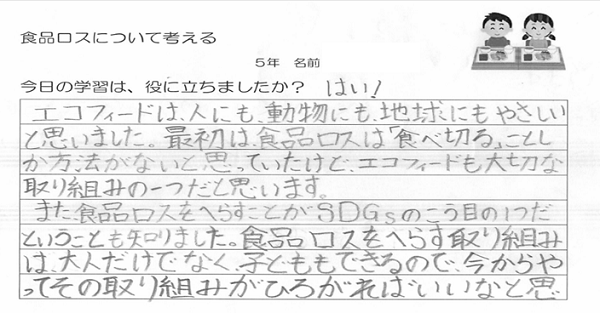 食品ロスについて考える
5年 名前
今日の学習は、役に立ちましたか? はい!
エコフィードは、人にも、動物にも、地球にもやさしい
と思いました。最初は、食品ロスは「食べ切る」ことし
か方法がないと思っていたけど、エコフィードも大切な
取り組みの一つだと思います。
また食品ロスをへらすことがSDGsのこう目の1つだ
ということも知りました。食品ロスをへらす取り組み
は、大人だけでなく、子どももできるので、今からや
ってその取り組みがひろがればいいなと思